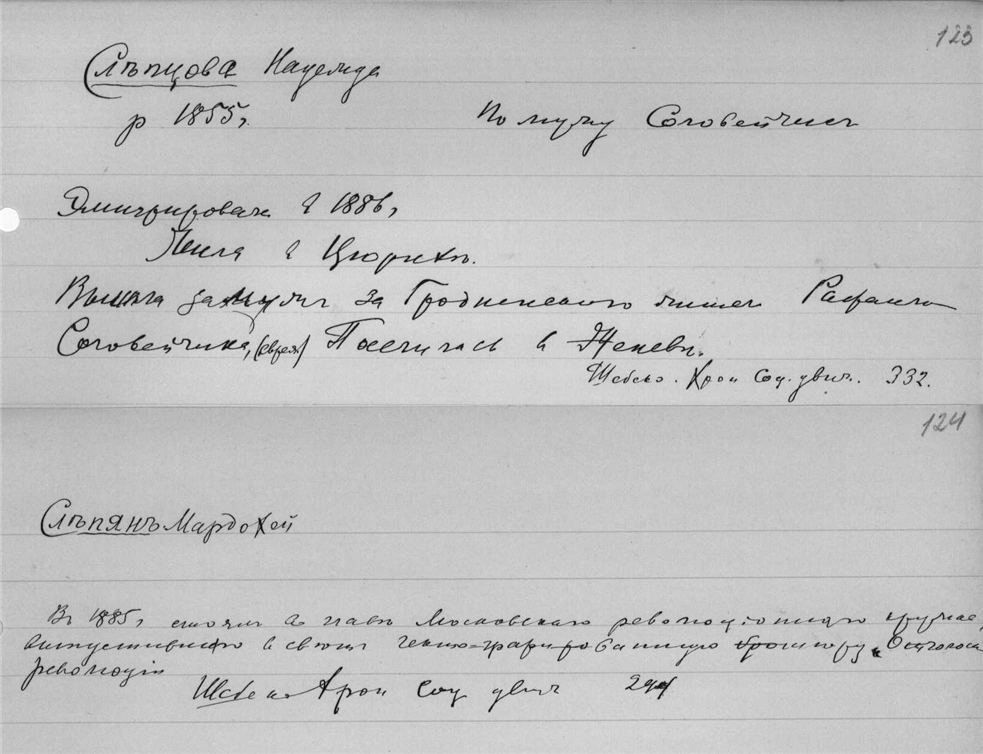 123
Слѣпцова Надежда
р 1855 г.
По мужу Соловейчикъ
Эмигрировала в 1886 г.
Жила в Цюрихѣ.
Вышла замужъ за Гродненскаго Рафаила
Соловейчика, (еврея) Поселилась в Женевѣ.
Шебеко. Хрон Соц. движ. 332.
124
Слѣпянъ Мардохей
Въ 1885 г стоял во главѣ Московскаго революціоннаго кружка,
выпустившаго в свѣт гектографированную брошюру „Отголоски
революціи
Шебеко Хрон Соц движ 294